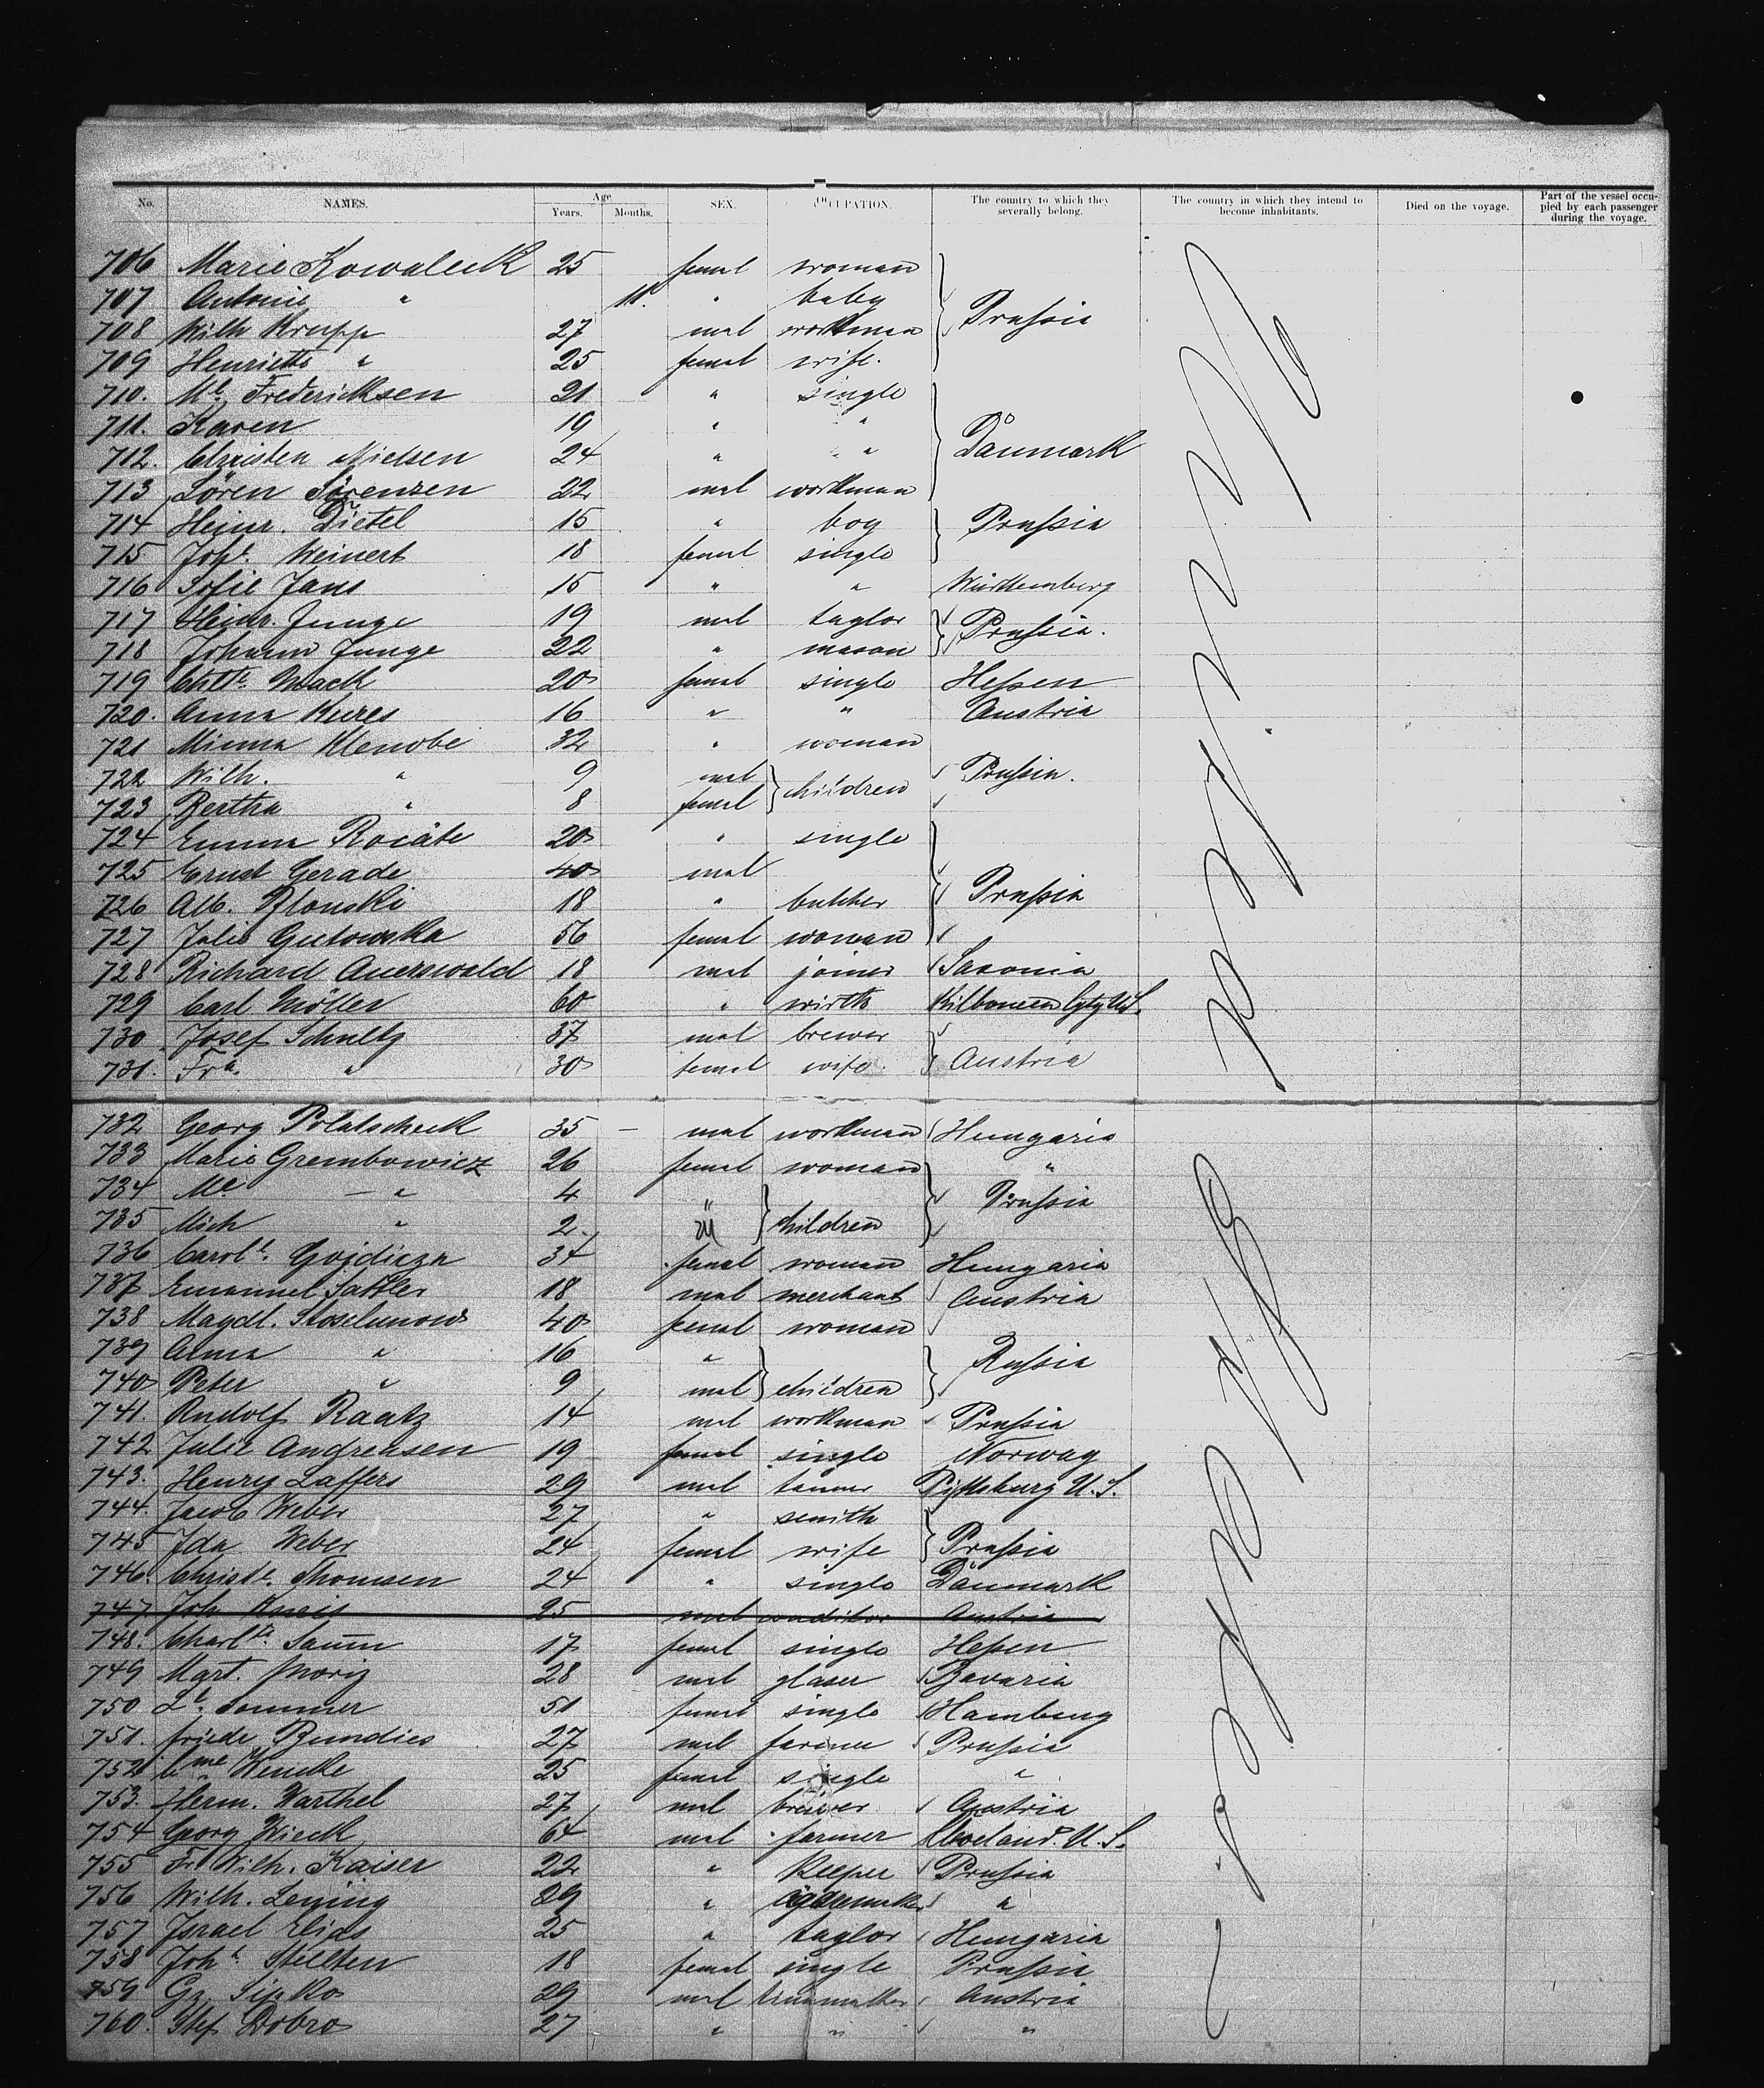 No. NAMES. Age Years. Months. SEX. OCCUPATION. The country to which they severally belong. The country in which they intend to become inhabitants. Died on the voyage. Part of the vessel occupied by each passenger during the voyage.
706 Marie Kowaleck 25 femal woman
707 Antonie " 11. " baby Prussia
708 Wilh Krupp 27 mal workman
709 Henriette " 25 femal wife.
710. Me. Fredericksen 21 " single
711. Karen 19 " "
712. Christen Nielsen 24 " " Dänmark
713 Sören Sörensen 22 mal workman
714 Heinr. Dietel 15 " boy Prussia
715 Johe. Weinert 18 femal single
716 Sofie Jans 15 " " Württemberg
717 Heinr. Junge 19 mal taylor Prussia.
718 Johann Junge 22 " mason
719 Mack 20 femal single Hessen
720. Anna Kures 16 " " Austria
721 Minna Klenobe 32 " woman
722 Wilh. " 9 mal children Prussia.
723 Bertha " 8 femal
724 Emma 20 " single
725 Ernst Gerade 40 mal
726 Alb. Blonski 18 " butcher Prussia
727 Julie Gutowska 56 femal woman
728 Richard Auerswald 18 mal joiner Saxonia
729 Carl Möller 60 " wirth U.S.
730 Josef Schultz 37 mal brewer
731. Fra. " 30 femal wife Austria
732 Georg Polatscheck 35 — mal workman Hungaria
733 Marie Grembowicz 26 femal woman "
734 Me — " 4 " Prussia
735 Mich " 2 children
736 Carole. Gojdicza 34 femal woman Hungaria
737 Emanuel Sattler 18 mal merchant Austria
738 Magdl. 40 femal woman
739 Alma " 16 " Russia
740 Peter " 9 mal children
741. Rudolf Raatz 14 mal workman Prussia
742 Julie Andreasen 19 femal single Norway
743. Henry Laffers 29 mal tanner Pittsburg U.S.
744. Jacob Weber 27 " smith
745 Ida Weber 24 femal wife Prussia
746. Christe. Thomsen 24 " single Dänmark
747 Joh 25 mal conditor Austria
748. Charltte. Saum 17 femal single Hessen
749 Mart. Moriz 28 mal glaser Bavaria
750 Le. Sommer 51 femal single Hamburg
751. friede Bundies 27 mal farmer Prussia
752 Wencke 25 femal single "
753. Herm. Warthel 27 mal brewer Austria
754 Georg Wieck 64 mal farmer Cleveland U.S.
755 Fr. Wilh. Kaiser 22 " Keeper Prussia
756 Wilh. 29 " "
757 Israel Elias 25 " taylor Hungaria
758 Johe. Stellten 18 femal single Prussia
759 Gg. Sipko 29 mal Austria
760. Stef Dobro 27 " " "